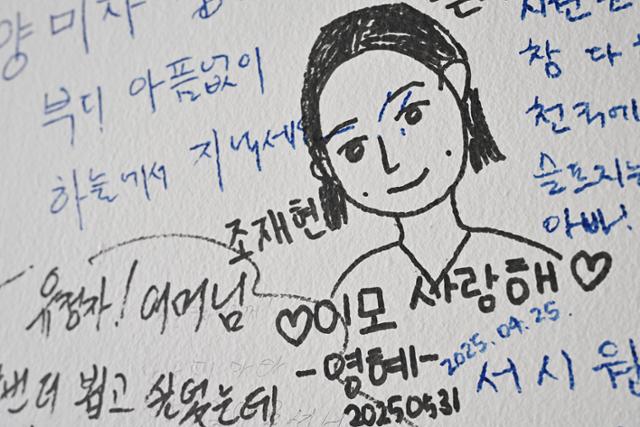 양미자
부디 아픔없이
하늘에서 지내세요
창 다
천국에
슬프지
아빠!
조재현
유정자! 어머님
♡이모 사랑해♡
-영혜-
20250531
2025.04.25.
서시원
번 더 뵙고 싶었는데